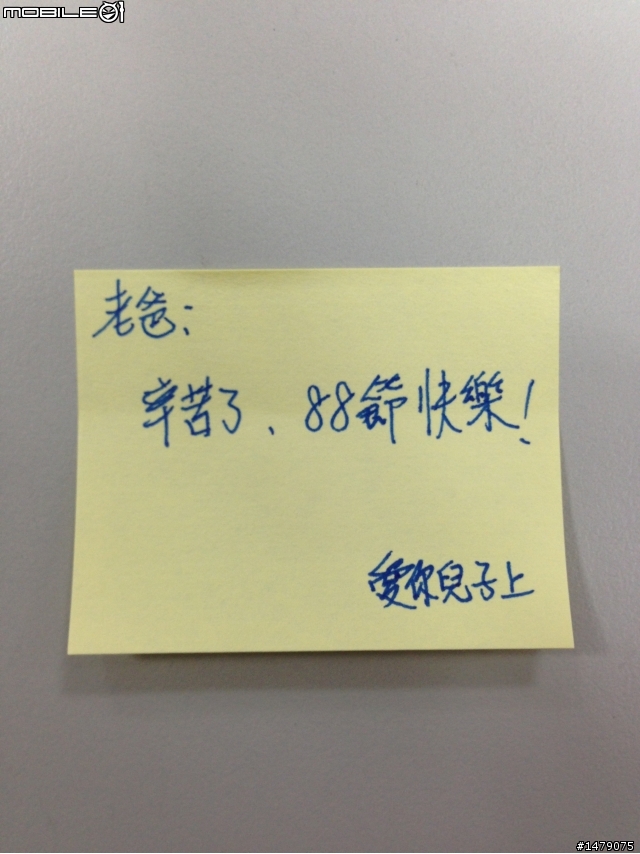 MOBILE01
老爸：
辛苦了、88節快樂！
愛你兒子上
#1479075